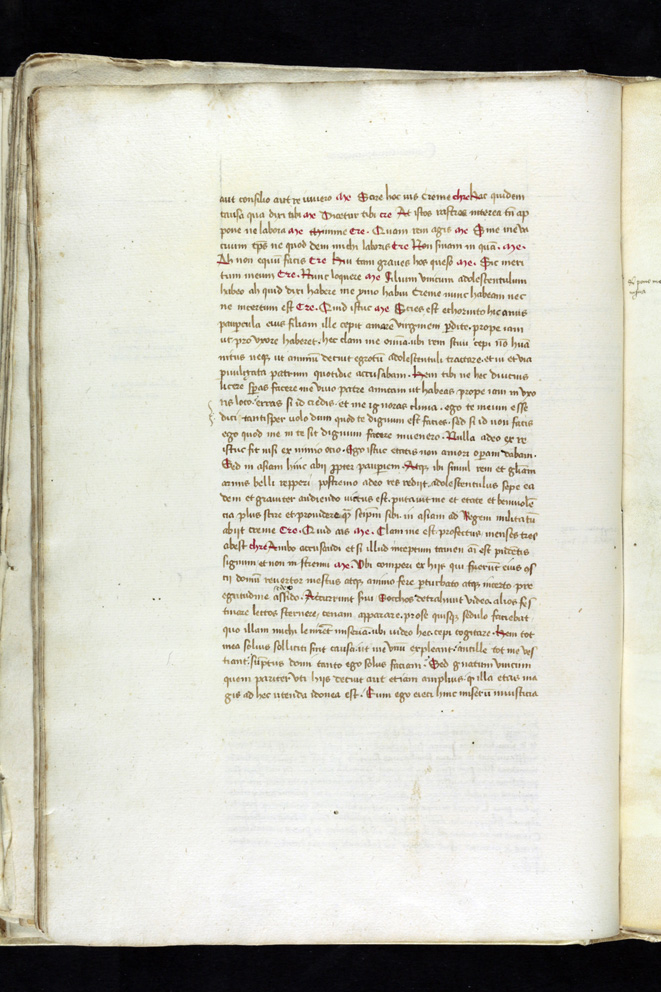 aut consilio aut re iuvero me Scire hoc vis Creme chre Hac quidem
causa qua dixi tibi me Dicetur tibi cre At istos rastros interea tn̄ ap
pone ne labora me minime Cre. Quam rem agis me Sine me va
cuum tp̄s ne quod dem michi laboris Cre Non sinam inquā. me.
Ah non equū facis Cre Hui tam graves hos queso me. Sic meri
tum meum Cre. Nunc loquere me filium unicum adolescentulum
habeo ah quid dixi habere me ymo habui Creme nunc habeam nec
ne incertum est Cre. Quid istuc me Scies est echorinto hic anus
paupercula eius filiam ille cepit amare virginem p̄dite. prope iam
ut pro uxore haberet. hec clam me omnia. ubi rem scivi cepi nō huā
nitus neq; ut animū decuit egrotū adolescentuli tractare. et vi et via
pvulgata patrum quotidie accusabam. Hem tibi ne hec diucius
licere sp̄as facere me vivo patre amicam ut habeas prope iam in uxo
ris loco. erras si id credis. et me ignoras clinia. ego te meum esse
dici. tantisper volo dum quod te dignum est facies. sed si id non facis
ego quod me in te sit dignum facere invenero. Nulla adeo ex re
istuc fit nisi ex nimio ocio. Ego istuc etatis non amori opam dabam.
Sed in asiam hinc abii ppter pauperiem. Atq; ibi simul rem et gl̄iam
armis belli repperi postremo adeo res rediit. adolescentulus sepe ea
dem et graviter audiendo victus est. putavit me et etate et benivolē
cia plus scire et providere q̄ seip̄m sibi. in asiam ad Regem militatū
abiit creme Cre. Quid ais me. Clam me est profectus. menses tres
abest chre Ambo accusandi et si illud inceptum tamen ai est pudētis
signum et non instrenui me. Ubi comperi ex hijs qui fuerunt eius os
cii domū revertor mestus atq; animo fere pturbato atq; incerto pre
egritudine assido. Accurrunt ſvi Socchos detrahunt video alios fes
tinare lectos sternere. cenam apparare. pro se quisq; sedulo faciebat
quo illam michi lenirēt miseriā. ubi video hec. cepi cogitare. Hem tot
mea solius solliciti sint causa. ut me unū expleant. ancille tot me ves
tiant. sūptus domi tanto ego solus faciam. Sed gnatum unicum
quem pariter uti hijs decuit aut etiam amplius. q̄ illa etas ma
gis ad hec utenda idonea est. Eum ego eieci hinc miserū iniusticia